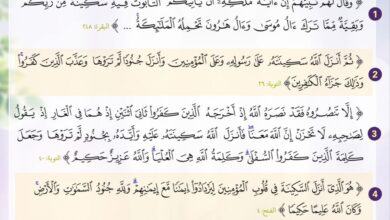 ﴿ وَقَالَ لَهُمْ نَبِيُّهُمْ إِنَّ ءَايَةَ مُلْكِهِ أَن يَأْتِيَكُمُ التَّابُوتُ فِيهِ سَكِينَةٌ مِّن رَّبِّكُمْ
1
وَبَقِيَّةٌ مِّمَّا تَرَكَ ءَالُ مُوسَى وَءَالُ هَارُونَ تَحْمِلُهُ الْمَلَائِكَةُ ... ﴾ البقرة: ٢٤٨
﴿ ثُمَّ أَنزَلَ اللَّهُ سَكِينَتَهُ عَلَى رَسُولِهِ وَعَلَى الْمُؤْمِنِينَ وَأَنزَلَ جُنُودًا لَّمْ تَرَوْهَا وَعَذَّبَ الَّذِينَ كَفَرُوا
2
وَذَلِكَ جَزَاءُ الْكَافِرِينَ ﴾ التوبة: ٢٦
﴿ إِلَّا تَنصُرُوهُ فَقَدْ نَصَرَهُ اللَّهُ إِذْ أَخْرَجَهُ الَّذِينَ كَفَرُوا ثَانِيَ اثْنَيْنِ إِذْ هُمَا فِي الْغَارِ إِذْ يَقُولُ
3
لِصَاحِبِهِ لَا تَحْزَنْ إِنَّ اللَّهَ مَعَنَا فَأَنزَلَ اللَّهُ سَكِينَتَهُ عَلَيْهِ وَأَيَّدَهُ بِجُنُودٍ لَّمْ تَرَوْهَا وَجَعَلَ
كَلِمَةَ الَّذِينَ كَفَرُوا السُّفْلَى وَكَلِمَةُ اللَّهِ هِيَ الْعُلْيَا وَاللَّهُ عَزِيزٌ حَكِيمٌ ﴾ التوبة: ٤٠
﴿ هُوَ الَّذِي أَنزَلَ السَّكِينَةَ فِي قُلُوبِ الْمُؤْمِنِينَ لِيَزْدَادُوا إِيمَانًا مَّعَ إِيمَانِهِمْ وَلِلَّهِ جُنُودُ السَّمَاوَاتِ وَالْأَرْضِ
4
وَكَانَ اللَّهُ عَلِيمًا حَكِيمًا ﴾ الفتح: ٤